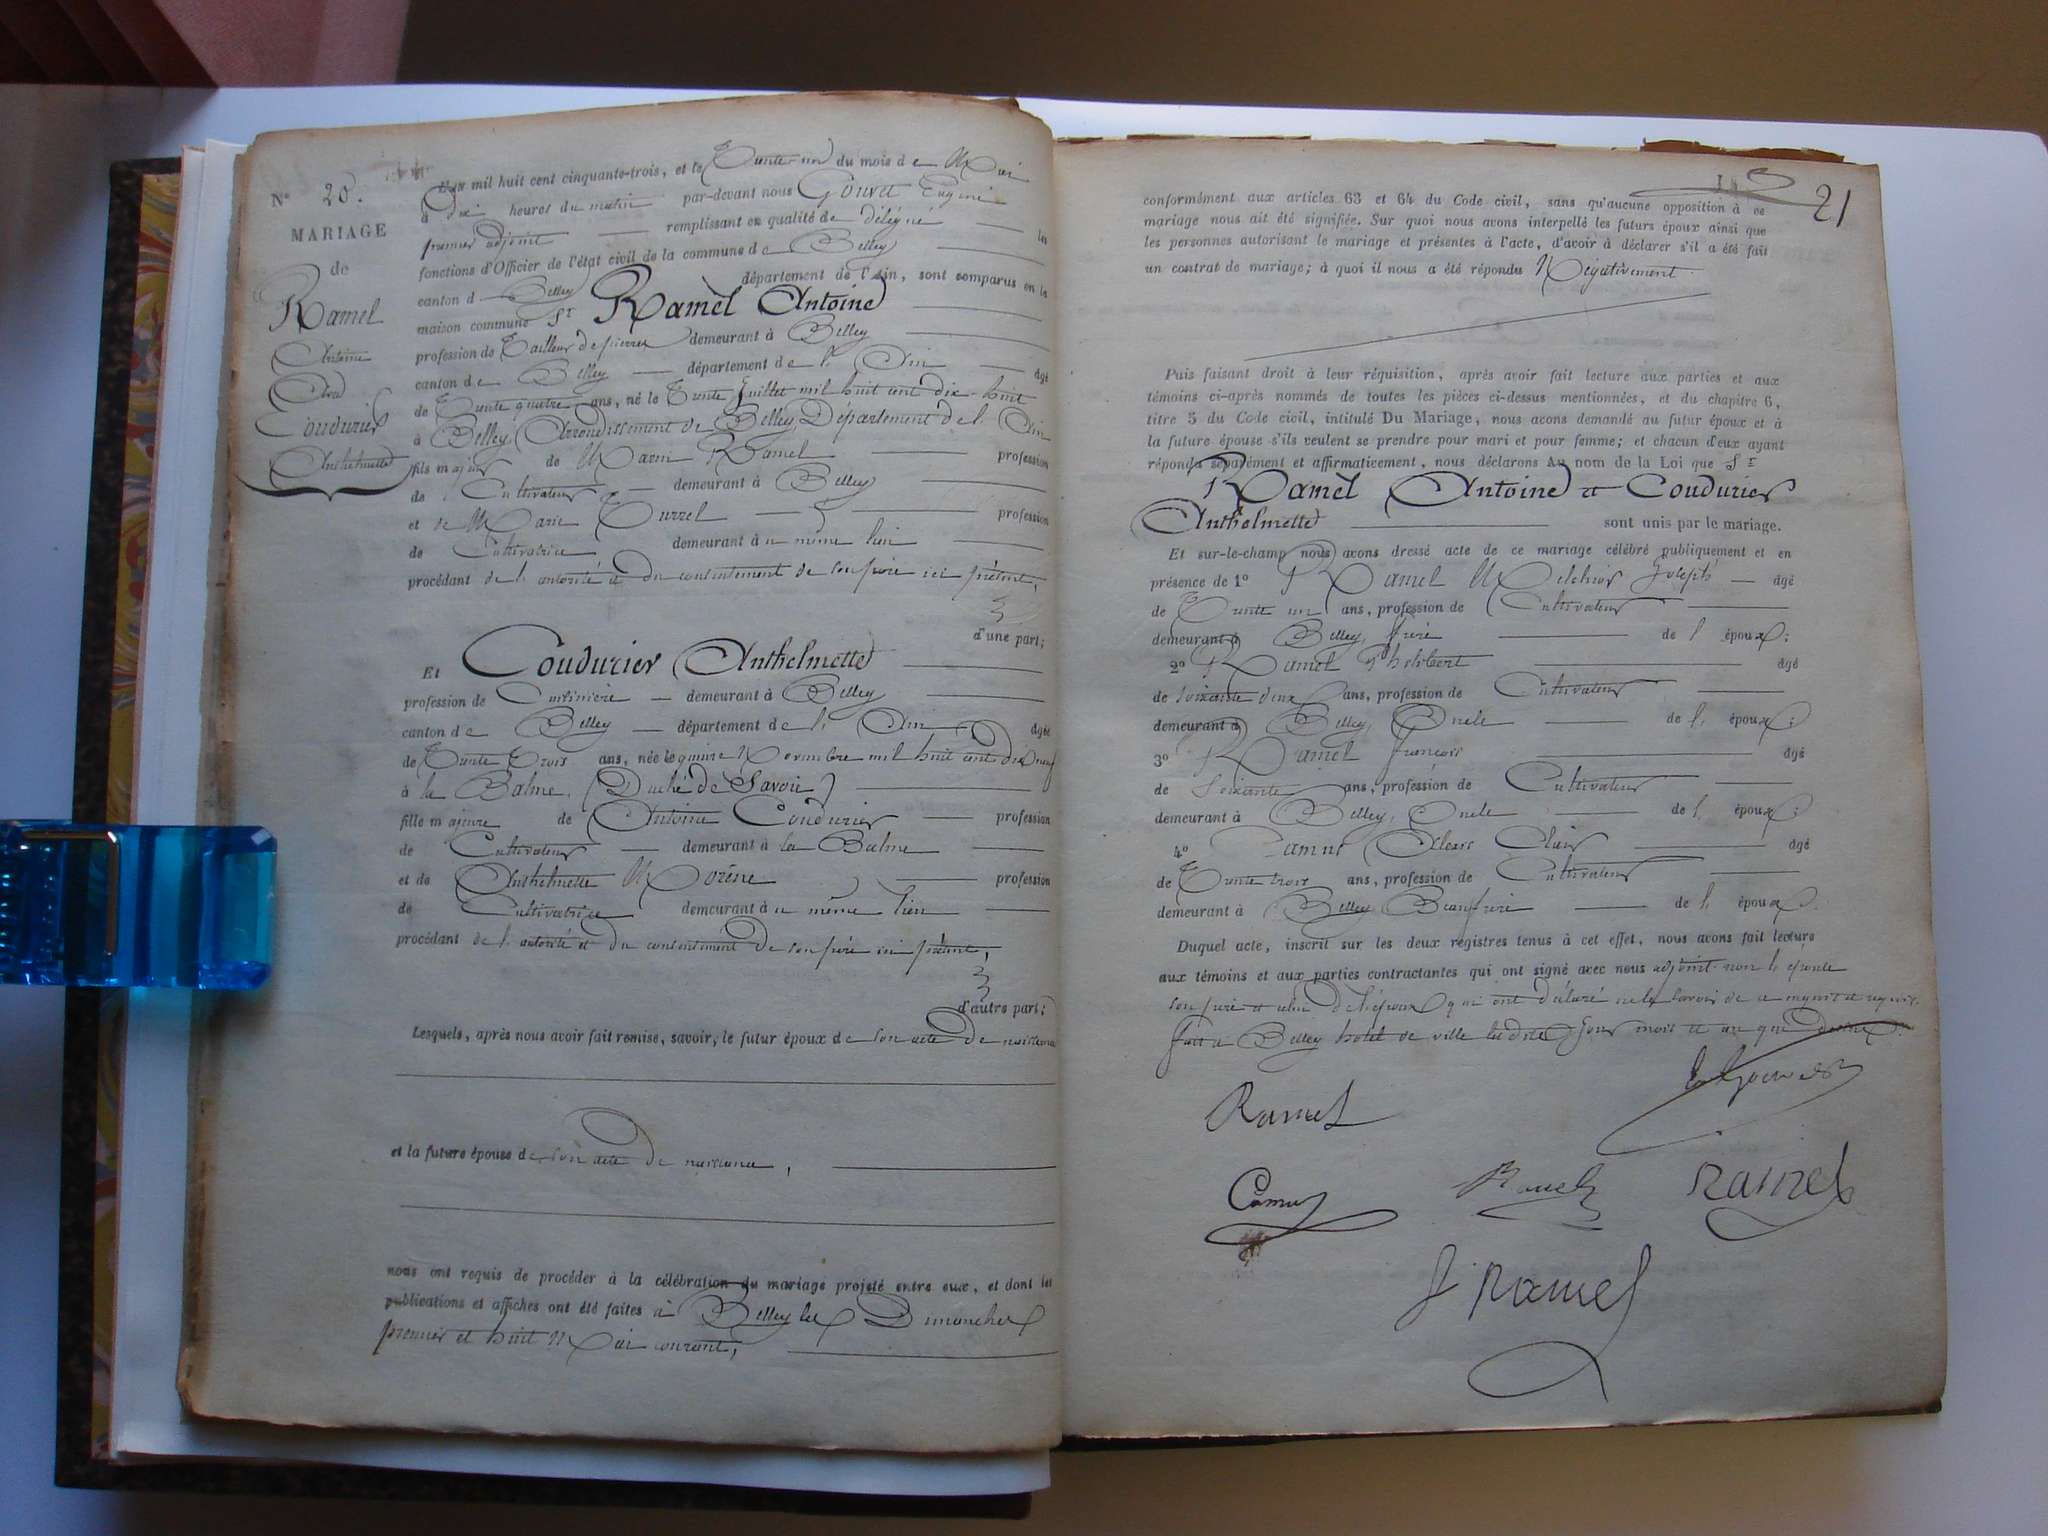 N° 20.
MARIAGE
de
Ramel
Antoine
Et
Coudurier
Anthelmette
L'an mil huit cent cinquante-trois, et le Trente-un du mois de Mai
à dix heures du matin par-devant nous Gouvet Eugène
premier adjoint remplissant en qualité de délégué les
fonctions d'Officier de l'état civil de la commune de Belley
canton d Belley département de l'Ain, sont comparus en la
maison commune Sr Ramel Antoine
profession de Tailleur de pierres demeurant à Belley
canton de Belley département de l' Ain âgé
de Trente quatre ans, né le Trente Juillet mil huit cent dix-huit
à Belley Arrondissement de Belley Département de l'Ain
fils majeur de Marin Ramel profession
de Cultivateur demeurant à Belley
et de Marie Turrel profession
de Cultivatrice demeurant à u même lieu
procédant de l'autorité et du consentement de son père ici présent,
d'une part;
Et Coudurier Anthelmette
profession de Cuisinière demeurant à Belley
canton de Belley département de l' Ain âgée
de Trente Trois ans, née le quinze Novembre mil huit cent dix neuf
à la Balme, (Duché de Savoie)
fille majeure de Antoine Coudurier profession
de Cultivateur demeurant à la Balme
et de Anthelmette Morène profession
de Cultivatrice demeurant à u même lieu
procédant de l'autorité et du consentement de son père ici présent,
d'autre part;
Lesquels, après nous avoir fait remise, savoir, le futur époux de son acte de naissance
et la future épouse de son acte de naissance,
nous ont requis de procéder à la célébration du mariage projeté entre eux, et dont les
publications et affiches ont été faites à Belley les Dimanches
premier et huit Mai courant,
21
conformément aux articles 63 et 64 du Code civil, sans qu'aucune opposition à ce
mariage nous ait été signifiée. Sur quoi nous avons interpellé les futurs époux ainsi que
les personnes autorisant le mariage et présentes à l'acte, d'avoir à déclarer s'il a été fait
un contrat de mariage; à quoi il nous a été répondu Négativement
Puis faisant droit à leur réquisition, après avoir fait lecture aux parties et aux
témoins ci-après nommés de toutes les pièces ci-dessus mentionnées, et du chapitre 6,
titre 5 du Code civil, intitulé Du Mariage, nous avons demandé au futur époux et à
la future épouse s'ils veulent se prendre pour mari et pour femme; et chacun d'eux ayant
répondu séparément et affirmativement, nous déclarons Au nom de la Loi que Sr
Ramel Antoine et Coudurier
Anthelmette sont unis par le mariage.
Et sur-le-champ nous avons dressé acte de ce mariage célébré publiquement et en
présence de 1° Ramel Melchior Joseph âgé
de Trente un ans, profession de Cultivateur
demeurant à Belley, frère de l' époux;
2° Ramel Philibert âgé
de soixante deux ans, profession de Cultivateur
demeurant à Belley, Oncle de l' époux;
3° Ramel François âgé
de Soixante ans, profession de Cultivateur
demeurant à Belley, Oncle de l' époux;
4° Camus Clair âgé
de Trente trois ans, profession de Cultivateur
demeurant à Belley Beaufrère de l' époux.
Duquel acte, inscrit sur les deux registres tenus à cet effet, nous avons fait lecture
aux témoins et aux parties contractantes qui ont signé avec nous adjoint non l'épouse
son père et celui de l'époux qui ont déclaré ne le savoir de ce enquis et requis.
fait à Belley hotel de ville lesdits jour mois et an que dessus
Ramel
E Gouvet
Camus
Ramel
Ramel
J Ramel